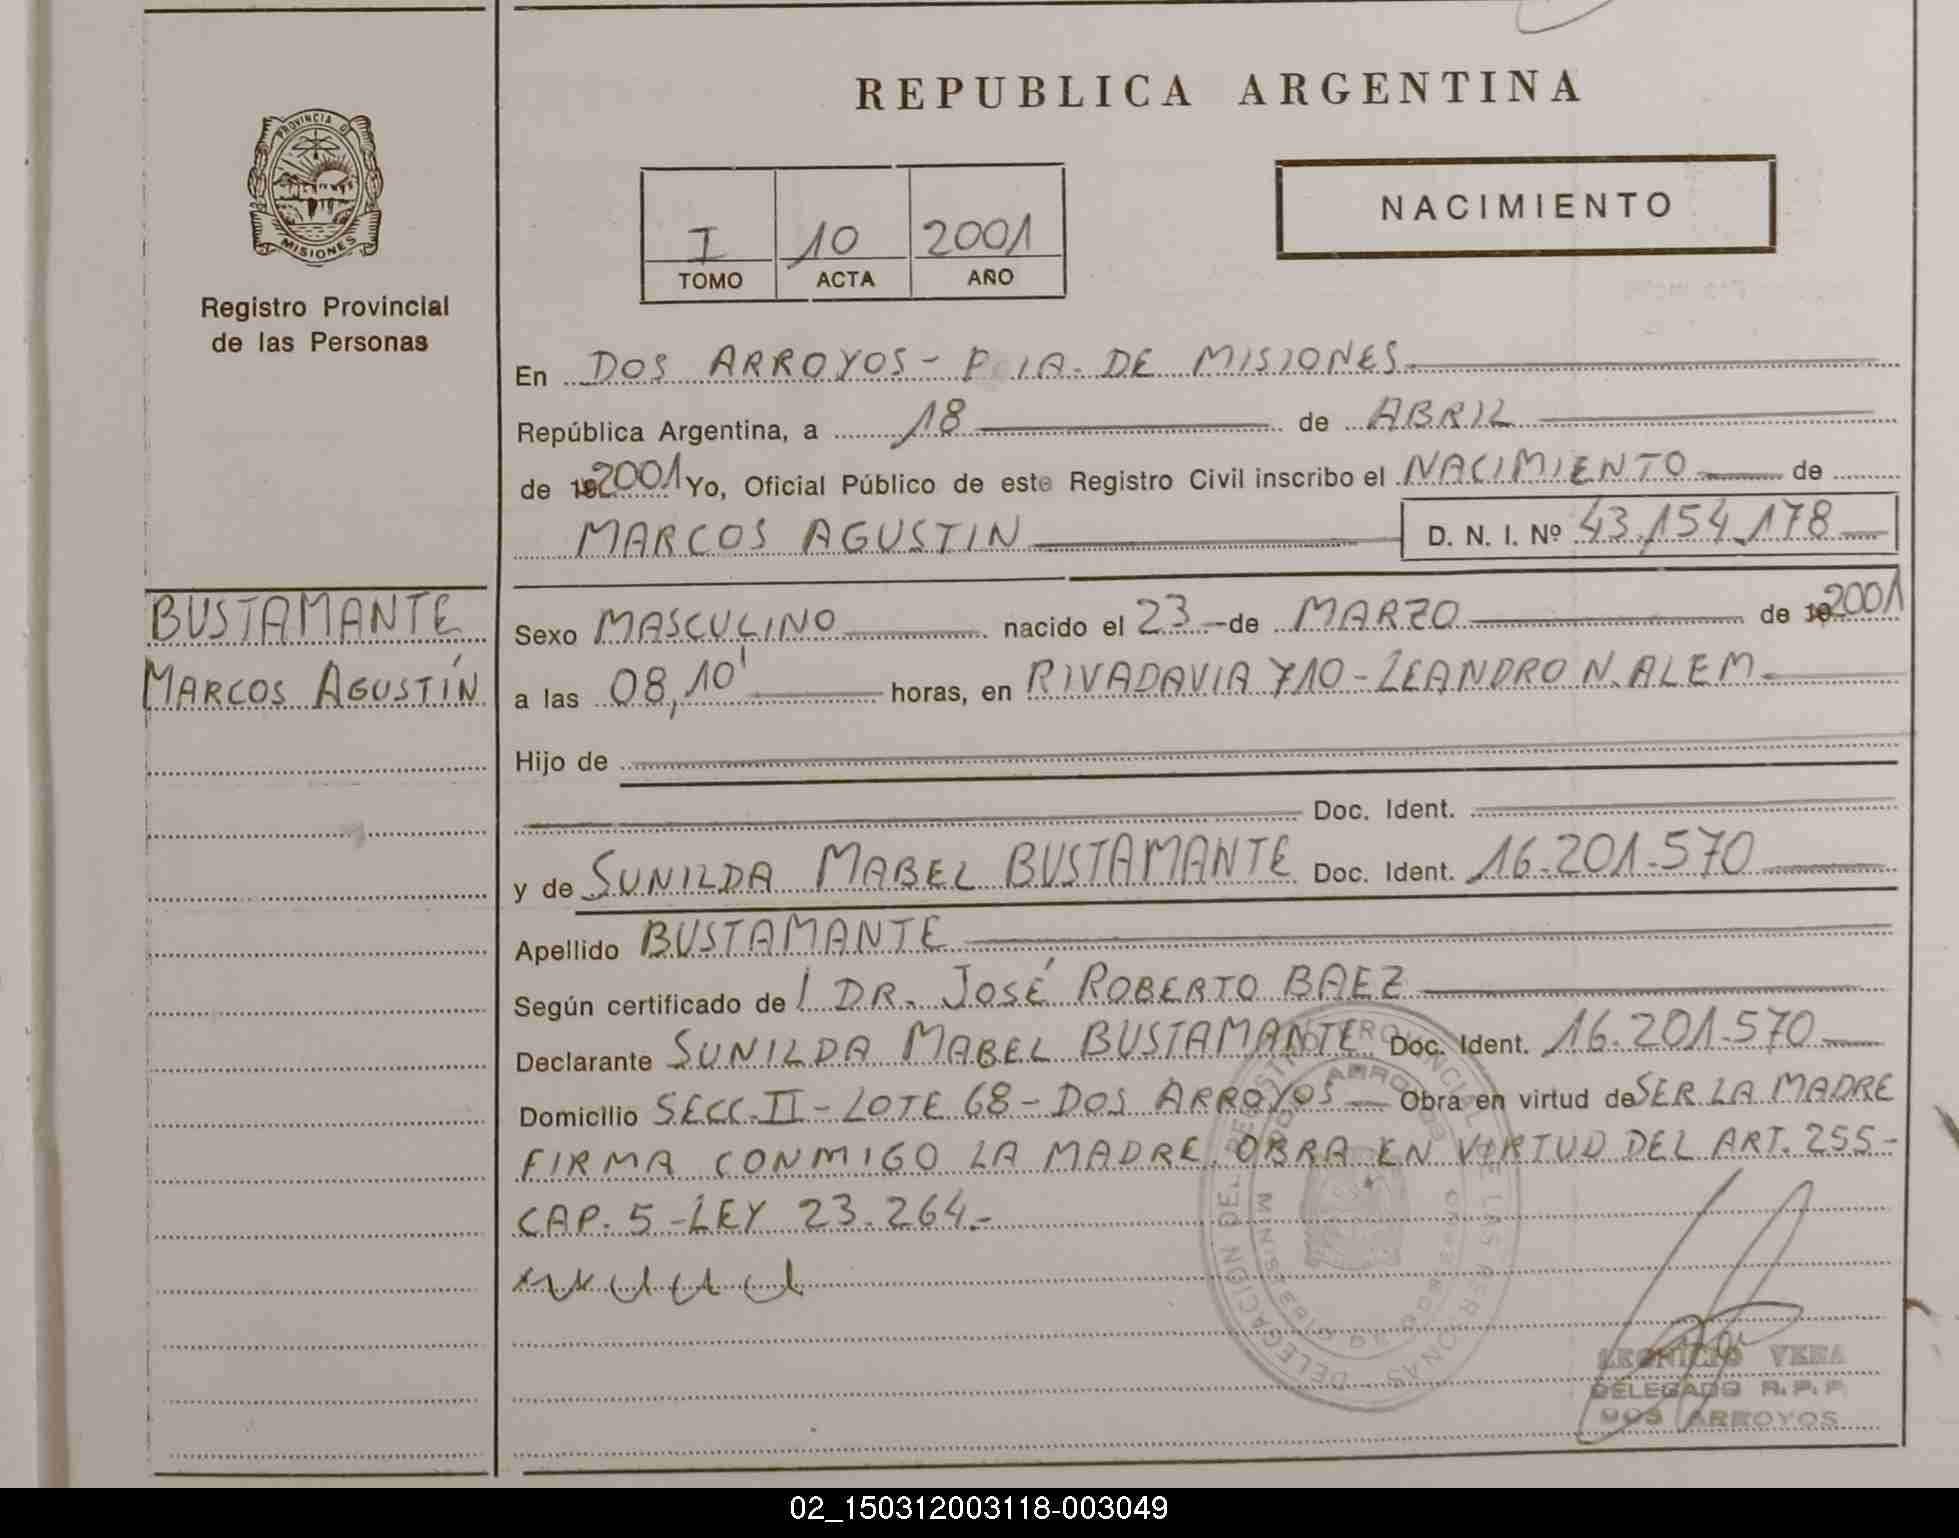 REPUBLICA ARGENTINA
PROVINCIA D
MISIONES
Registro Provincial
de las Personas
I 10 2001
TOMO ACTA AÑO
NACIMIENTO
En DOS ARROYOS - PCIA. DE MISIONES
República Argentina, a 18 de ABRIL
de 192001 Yo, Oficial Público de este Registro Civil inscribo el NACIMIENTO de
MARCOS AGUSTIN D. N. I. Nº 43.154.178
BUSTAMANTE
MARCOS AGUSTÍN
Sexo MASCULINO nacido el 23 - de MARZO de 192001
a las 08,10' horas, en RIVADAVIA 710 - LEANDRO N. ALEM
Hijo de
Doc. Ident.
y de SUNILDA MABEL BUSTAMANTE Doc. Ident. 16.201.570
Apellido BUSTAMANTE
Según certificado de l DR. JOSÉ ROBERTO BAEZ
Declarante SUNILDA MABEL BUSTAMANTE Doc. Ident. 16.201.570
Domicilio SECC. II - LOTE 68 - DOS ARROYOS Obra en virtud de SER LA MADRE
FIRMA CONMIGO LA MADRE. OBRA EN VIRTUD DEL ART. 255 -
CAP. 5 - LEY 23.264.-
DELEGACION DEL REGISTRO PROVINCIAL DE LAS PERSONAS
DOS ARROYOS
VERA
DELEGADO R.P.P
DOS ARROYOS
02_150312003118-003049